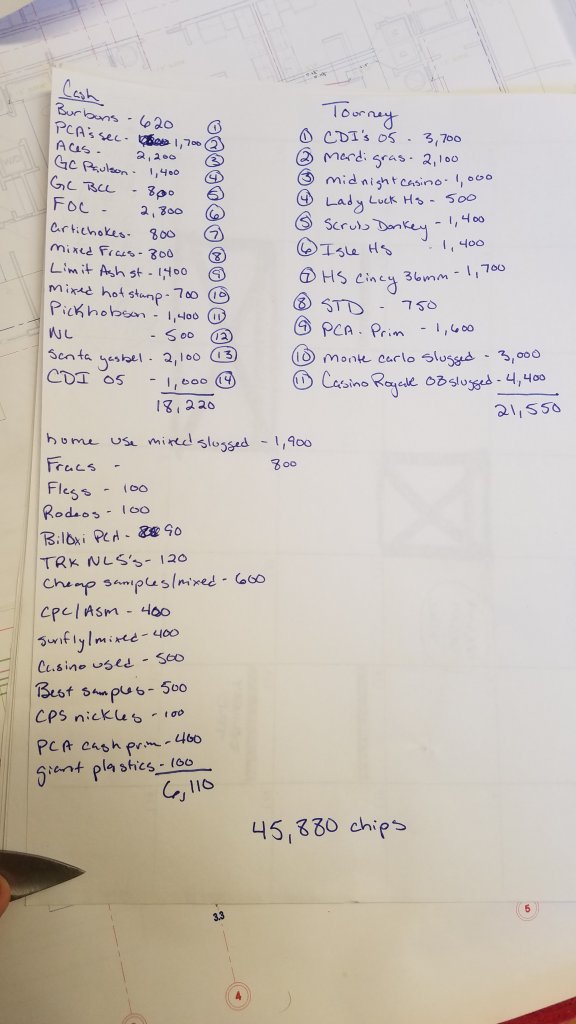 Cash
Burbons - 620 ①
PCA's sec. - 1,700 ②
Aces - 2,200 ③
GC Paulson - 1,400 ④
GC BCC - 800 ⑤
FOC - 2,800 ⑥
artichokes - 800 ⑦
mixed Fracs - 800 ⑧
Limit Ash st - 1,400 ⑨
mixed hotstamp - 700 ⑩
Pickhobson - 1,400 ⑪
NL - 500 ⑫
Santa ysabel - 2,100 ⑬
CDI 05 - 1,000 ⑭
18,220
Tourney
① CDI's 05 - 3,700
② Mardi gras - 2,100
③ midnight casino - 1,000
④ Lady Luck Hs - 500
⑤ Scrub Donkey - 1,400
⑥ Isle HS - 1,400
⑦ HS cincy 36mm - 1,700
⑧ STD - 750
⑨ PCA - Prim - 1,600
⑩ monte carlo slugged - 3,000
⑪ Casino Royale 03 slugged - 4,400
21,550
home use mixed slugged - 1,900
Fracs - 800
Flags - 100
Rodeos - 100
Biloxi PCA - 90
TRK NLS's - 120
Cheap samples/mixed - 600
CPC/ASM - 400
sunfly/mixed - 400
Casino used - 500
Best samples - 500
CPS nickles - 100
PCA cash prim - 400
giant plastics - 100
6,110
45,880 chips
3.3
4
5